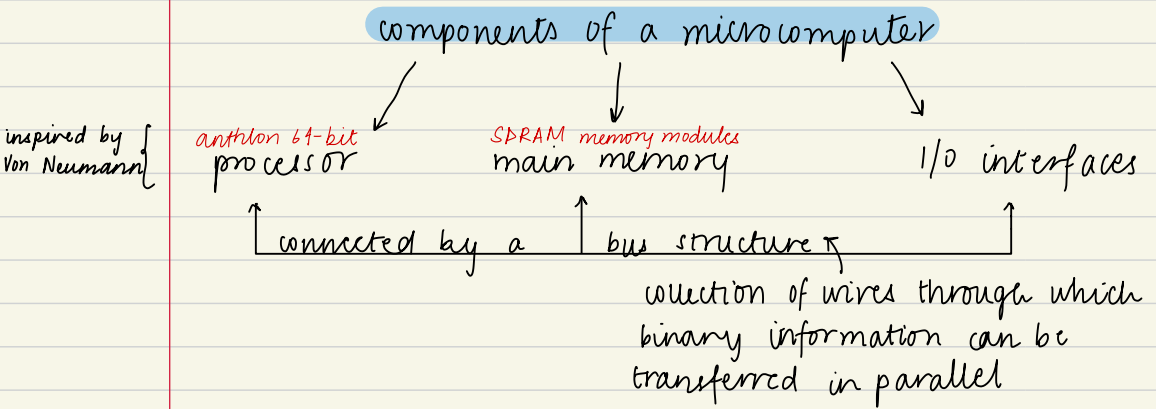 components of a microcomputer
inspired by
Von Neumann
anthlon 64-bit
processor
SDRAM memory modules
main memory
I/O interfaces
connected by a bus structure
collection of wires through which
binary information can be
transferred in parallel